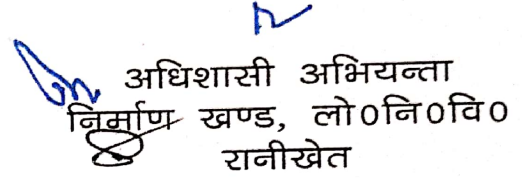 अधिशासी अभियन्ता
निर्माण खण्ड, लो०नि०वि०
रानीखेत